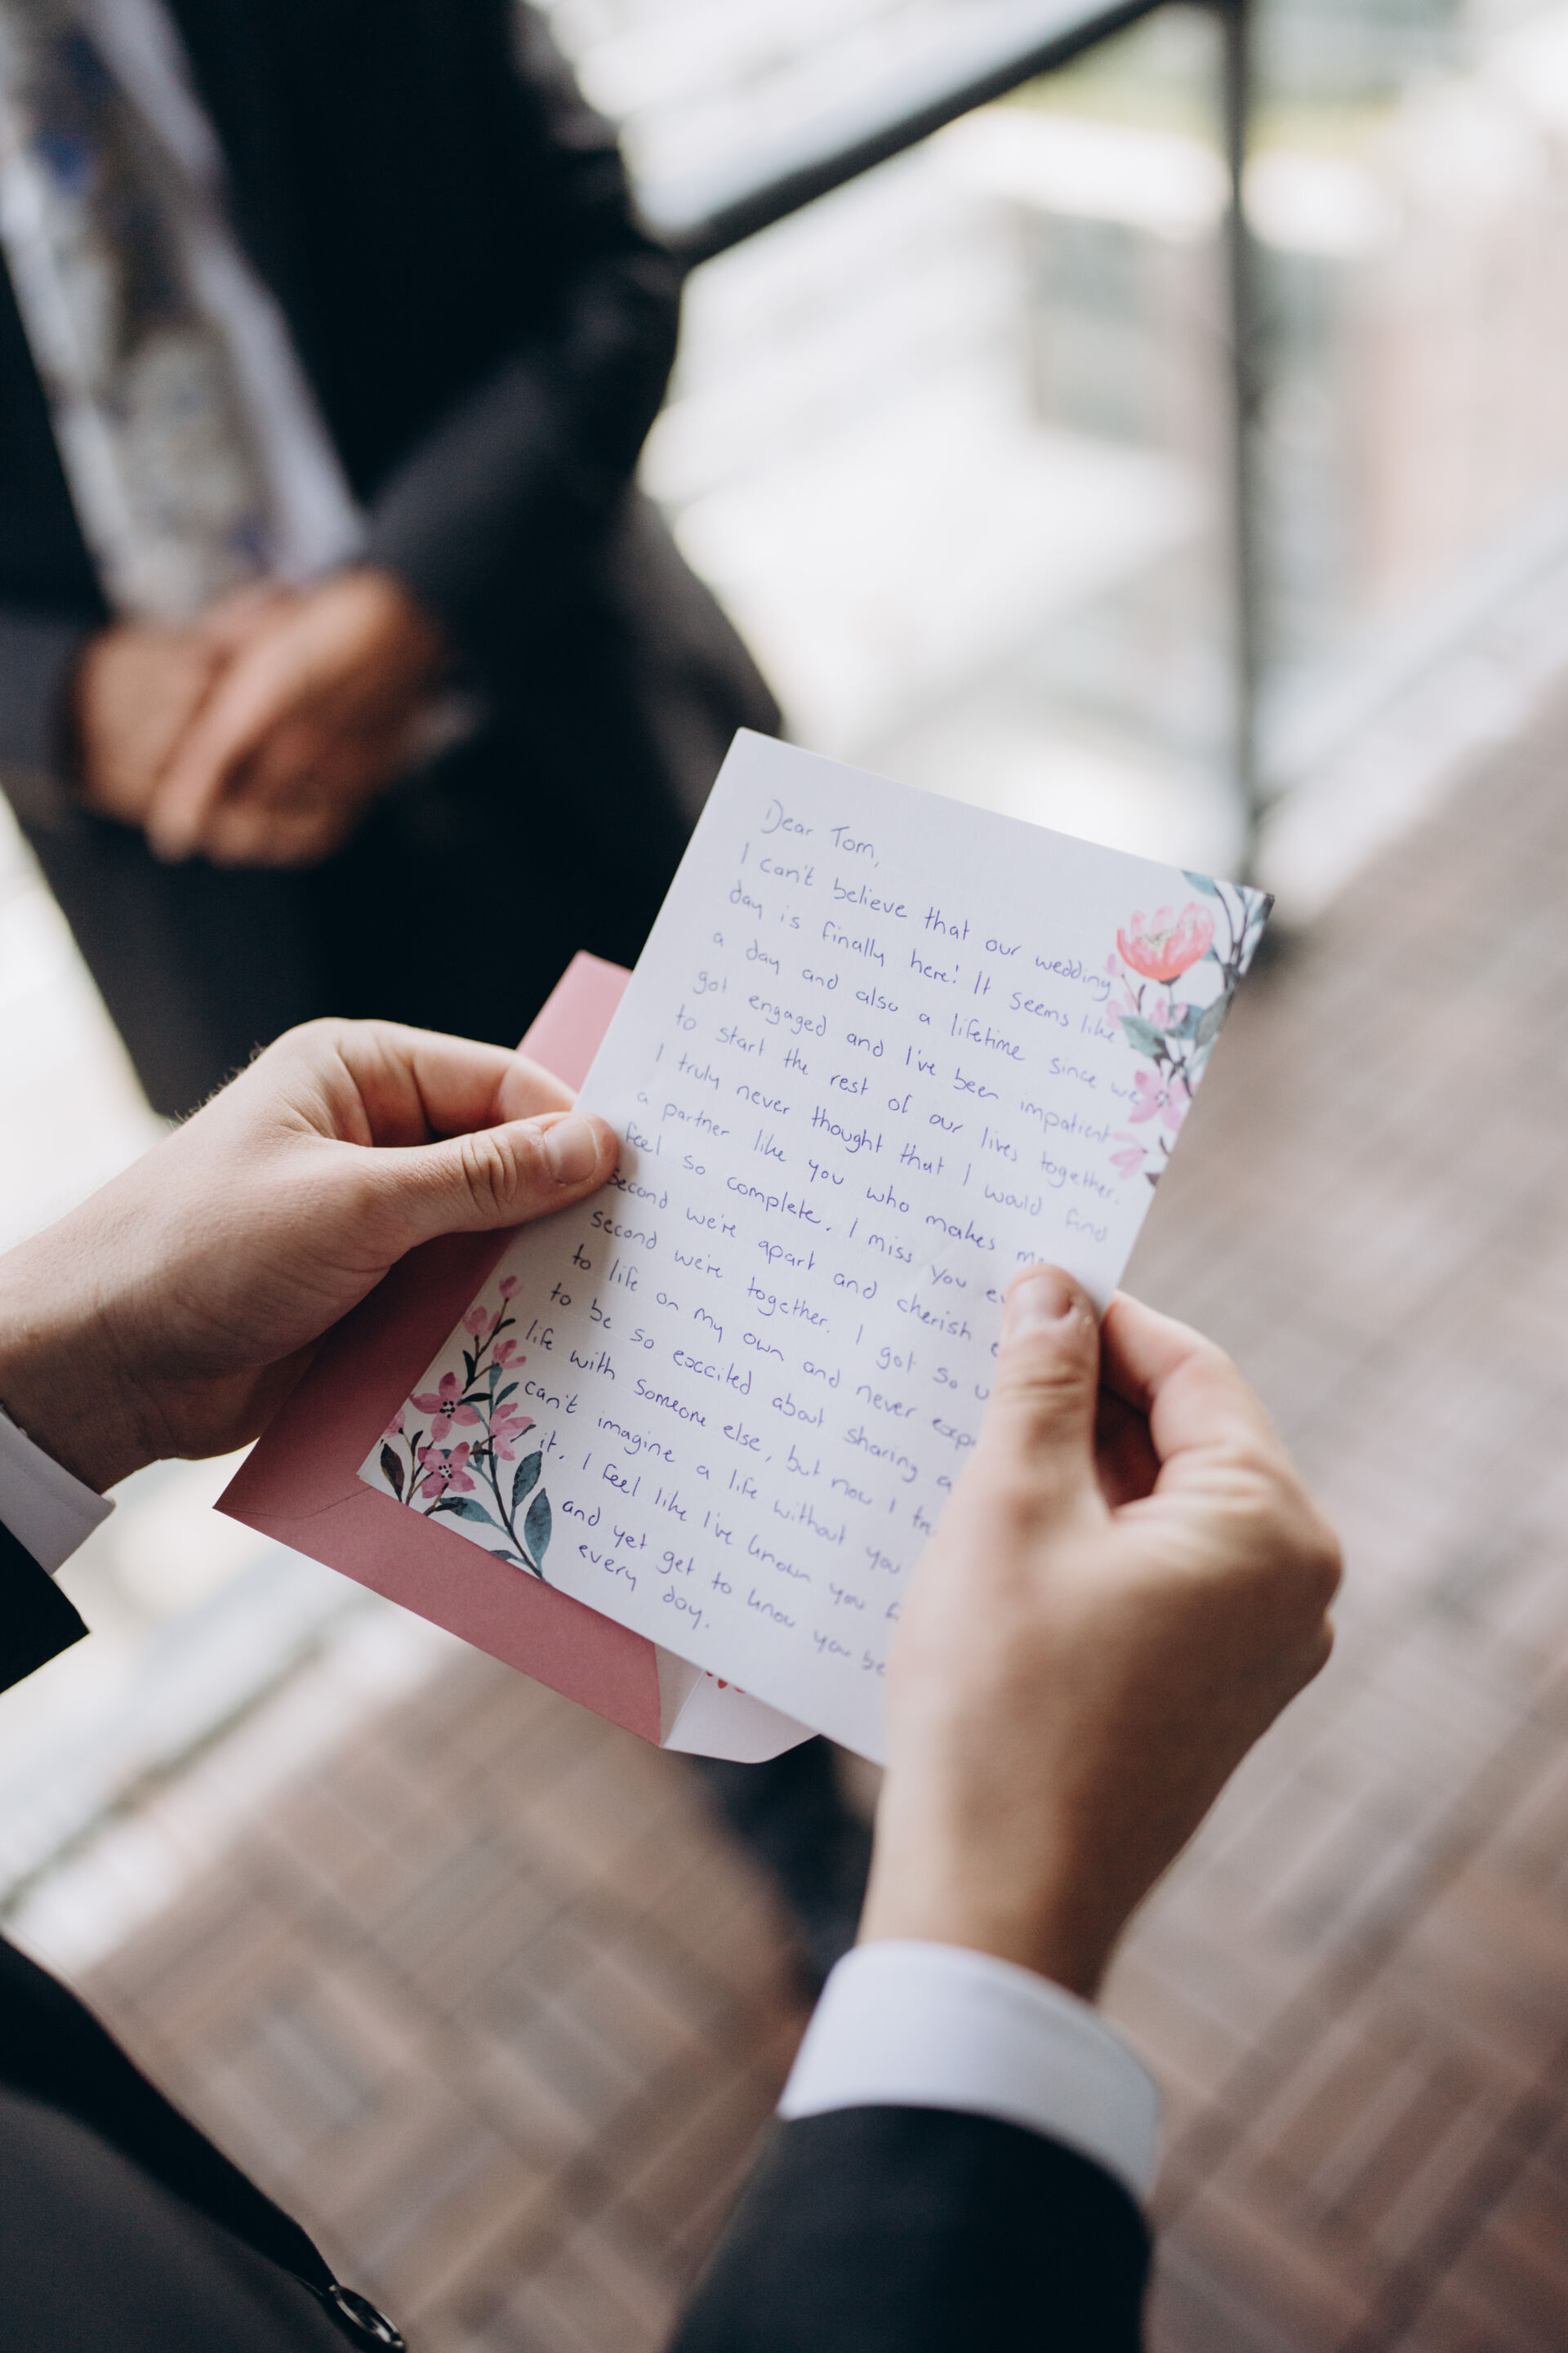 Dear Tom,
I can't believe that our wedding
day is finally here! It seems like
a day and also a lifetime since we
got engaged and I've been impatient
to start the rest of our lives together.
I truly never thought that I would find
a partner like you who makes me
feel so complete. I miss you
second we're apart and cherish
second we're together. I got so
to life on my own and never
to be so exccited about sharing
life with someone else, but now I
can't imagine a life without you
it. I feel like I've known you
and yet get to know you
every day.